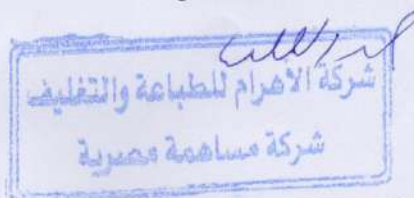 شركة الأهرام للطباعة والتغليف
شركة مساهمة مصرية